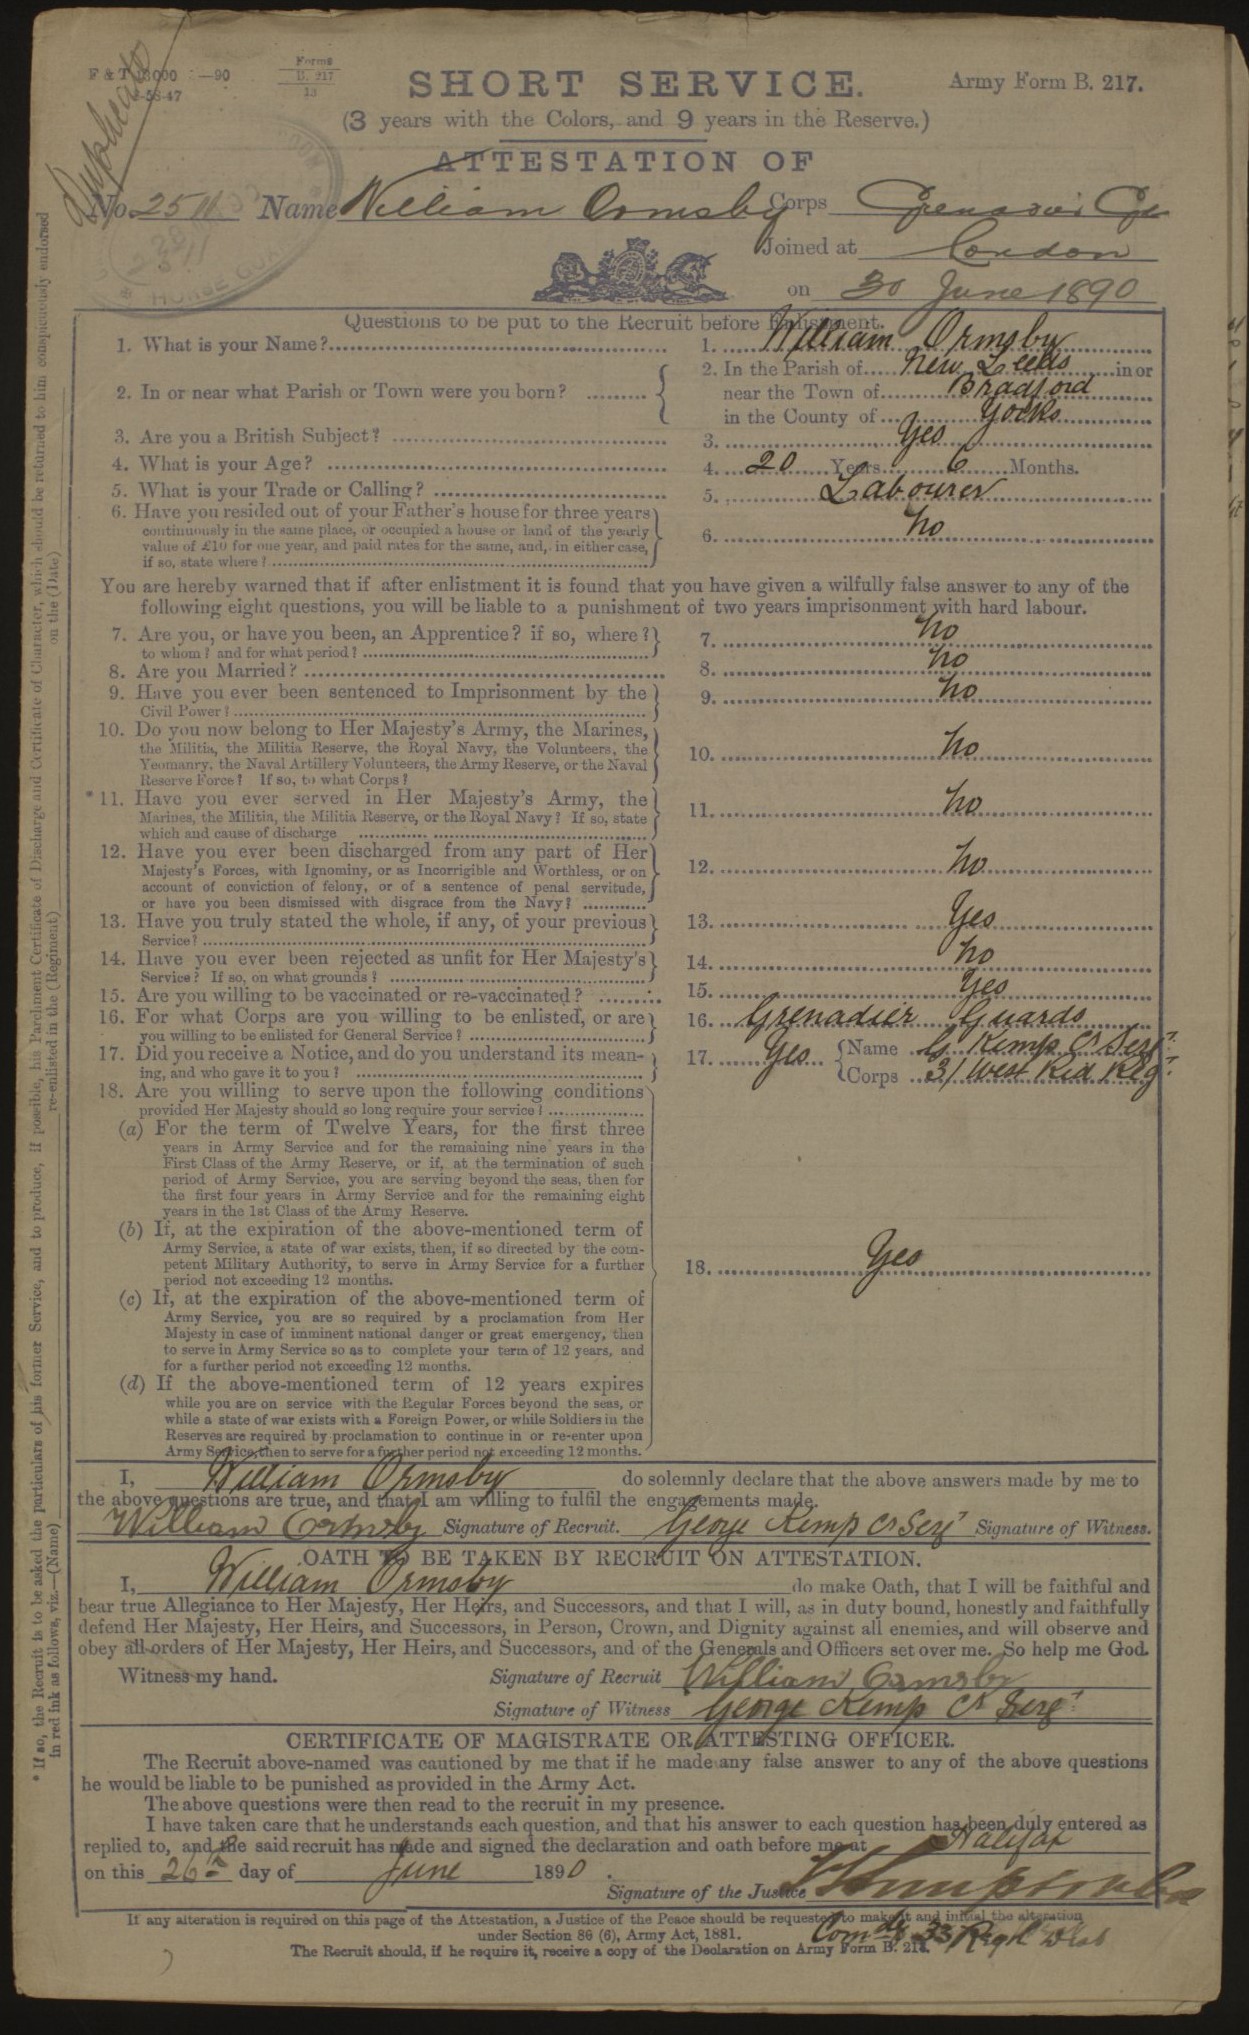 Duplicate
F & T —90
Forms
B. 217
13
SHORT SERVICE.
Army Form B. 217.
(3 years with the Colors, and 9 years in the Reserve.)
ATTESTATION OF
No. 2511 Name William Ormsby Corps Grenadier Gds
Joined at London
on 30 June 1890
HORSE GUARDS
Questions to be put to the Recruit before Enlistment.
1. What is your Name? 1. William Ormsby
2. In or near what Parish or Town were you born? 2. In the Parish of New Leeds in or
near the Town of Bradford
in the County of Yorks
3. Are you a British Subject? 3. Yes
4. What is your Age? 4. 20 Years 6 Months.
5. What is your Trade or Calling? 5. Labourer
6. Have you resided out of your Father's house for three years
continuously in the same place, or occupied a house or land of the yearly
value of £10 for one year, and paid rates for the same, and, in either case,
if so, state where? 6. No
You are hereby warned that if after enlistment it is found that you have given a wilfully false answer to any of the
following eight questions, you will be liable to a punishment of two years imprisonment with hard labour.
7. Are you, or have you been, an Apprentice? if so, where?
to whom? and for what period? 7. No
8. Are you Married? 8. No
9. Have you ever been sentenced to Imprisonment by the
Civil Power? 9. No
10. Do you now belong to Her Majesty's Army, the Marines,
the Militia, the Militia Reserve, the Royal Navy, the Volunteers, the
Yeomanry, the Naval Artillery Volunteers, the Army Reserve, or the Naval
Reserve Force? If so, to what Corps? 10. No
* 11. Have you ever served in Her Majesty's Army, the
Marines, the Militia, the Militia Reserve, or the Royal Navy? If so, state
which and cause of discharge 11. No
12. Have you ever been discharged from any part of Her
Majesty's Forces, with Ignominy, or as Incorrigible and Worthless, or on
account of conviction of felony, or of a sentence of penal servitude,
or have you been dismissed with disgrace from the Navy? 12. No
13. Have you truly stated the whole, if any, of your previous
Service? 13. Yes
14. Have you ever been rejected as unfit for Her Majesty's
Service? If so, on what grounds? 14. No
15. Are you willing to be vaccinated or re-vaccinated? 15. Yes
16. For what Corps are you willing to be enlisted, or are
you willing to be enlisted for General Service? 16. Grenadier Guards
17. Did you receive a Notice, and do you understand its mean-
ing, and who gave it to you? 17. Yes Name G Kemp Cr Sergt
Corps 3/ West Rid Regt
18. Are you willing to serve upon the following conditions
provided Her Majesty should so long require your service?
(a) For the term of Twelve Years, for the first three
years in Army Service and for the remaining nine years in the
First Class of the Army Reserve, or if, at the termination of such
period of Army Service, you are serving beyond the seas, then for
the first four years in Army Service and for the remaining eight
years in the 1st Class of the Army Reserve.
(b) If, at the expiration of the above-mentioned term of
Army Service, a state of war exists, then, if so directed by the com-
petent Military Authority, to serve in Army Service for a further
period not exceeding 12 months.
18. Yes
(c) If, at the expiration of the above-mentioned term of
Army Service, you are so required by a proclamation from Her
Majesty in case of imminent national danger or great emergency, then
to serve in Army Service so as to complete your term of 12 years, and
for a further period not exceeding 12 months.
(d) If the above-mentioned term of 12 years expires
while you are on service with the Regular Forces beyond the seas, or
while a state of war exists with a Foreign Power, or while Soldiers in the
Reserves are required by proclamation to continue in or re-enter upon
Army Service, then to serve for a further period not exceeding 12 months.
I, William Ormsby do solemnly declare that the above answers made by me to
the above questions are true, and that I am willing to fulfil the engagements made.
William Ormsby Signature of Recruit. George Kemp Cr Sergt Signature of Witness.
OATH TO BE TAKEN BY RECRUIT ON ATTESTATION.
I, William Ormsby do make Oath, that I will be faithful and
bear true Allegiance to Her Majesty, Her Heirs, and Successors, and that I will, as in duty bound, honestly and faithfully
defend Her Majesty, Her Heirs, and Successors, in Person, Crown, and Dignity against all enemies, and will observe and
obey all orders of Her Majesty, Her Heirs, and Successors, and of the Generals and Officers set over me. So help me God.
Witness my hand. Signature of Recruit William Ormsby
Signature of Witness George Kemp Cr Sergt
CERTIFICATE OF MAGISTRATE OR ATTESTING OFFICER.
The Recruit above-named was cautioned by me that if he made any false answer to any of the above questions
he would be liable to be punished as provided in the Army Act.
The above questions were then read to the recruit in my presence.
I have taken care that he understands each question, and that his answer to each question has been duly entered as
replied to, and the said recruit has made and signed the declaration and oath before me at Halifax
on this 26th day of June 1890.
Signature of the Justice
If any alteration is required on this page of the Attestation, a Justice of the Peace should be requested to make it and initial the alteration
under Section 80 (6), Army Act, 1881.
Comdg 33 Regtl Dist
The Recruit should, if he require it, receive a copy of the Declaration on Army Form B. 218.
* If so, the Recruit is to be asked the particulars of his former Service, and to produce, if possible, his Parchment Certificate of Discharge and Certificate of Character, which should be returned to him conspicuously endorsed
in red ink as follows, viz.—(Name) re-enlisted in the (Regiment) on the (Date)